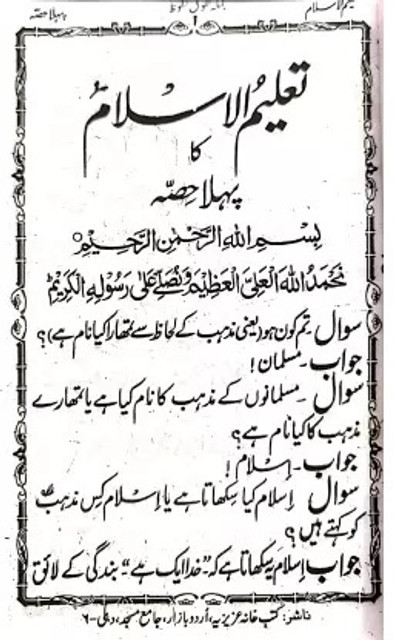 تعلیم الاسلام
پہلا حصہ
تعلیمُ الاسلام
کا
پہلا حصّہ
بِسْمِ اللهِ الرَّحْمٰنِ الرَّحِيْمِ
نَحْمَدُ اللهَ الْعَلِيَّ الْعَظِيْمَ وَنُصَلِّیْ عَلٰی رَسُوْلِهِ الْكَرِيْمِ
سوال ۔ تم کون ہو (یعنی مذہب کے لحاظ سے تمھارا کیا نام ہے)؟
جواب ۔ مسلمان!
سوال ۔ مسلمانوں کے مذہب کا نام کیا ہے یا تمھارے
مذہب کا کیا نام ہے؟
جواب ۔ اِسلام!
سوال ۔ اِسلام کیا سِکھاتا ہے یا اِسلام کِس مذہب
کو کہتے ہیں؟
جواب اِسلام یہ سِکھاتا ہے کہ "خدا ایک ہے" بندگی کے لائق
ناشر: کتب خانہ عزیزیہ، اُردو بازار، جامع مسجد، دہلی - ۶